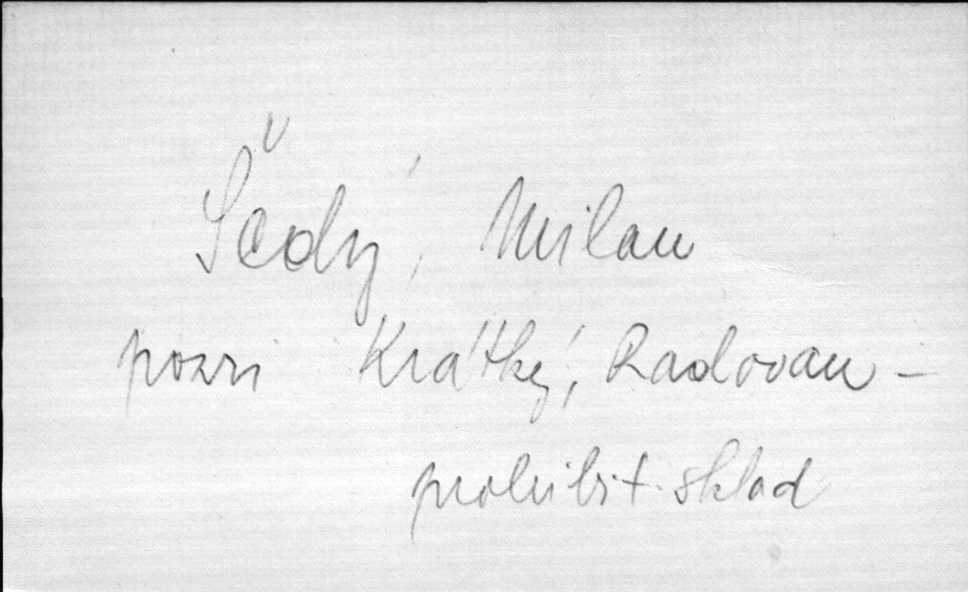 Šedý, Milan
pozri Krátký, Radovan -
prohibit. sklad